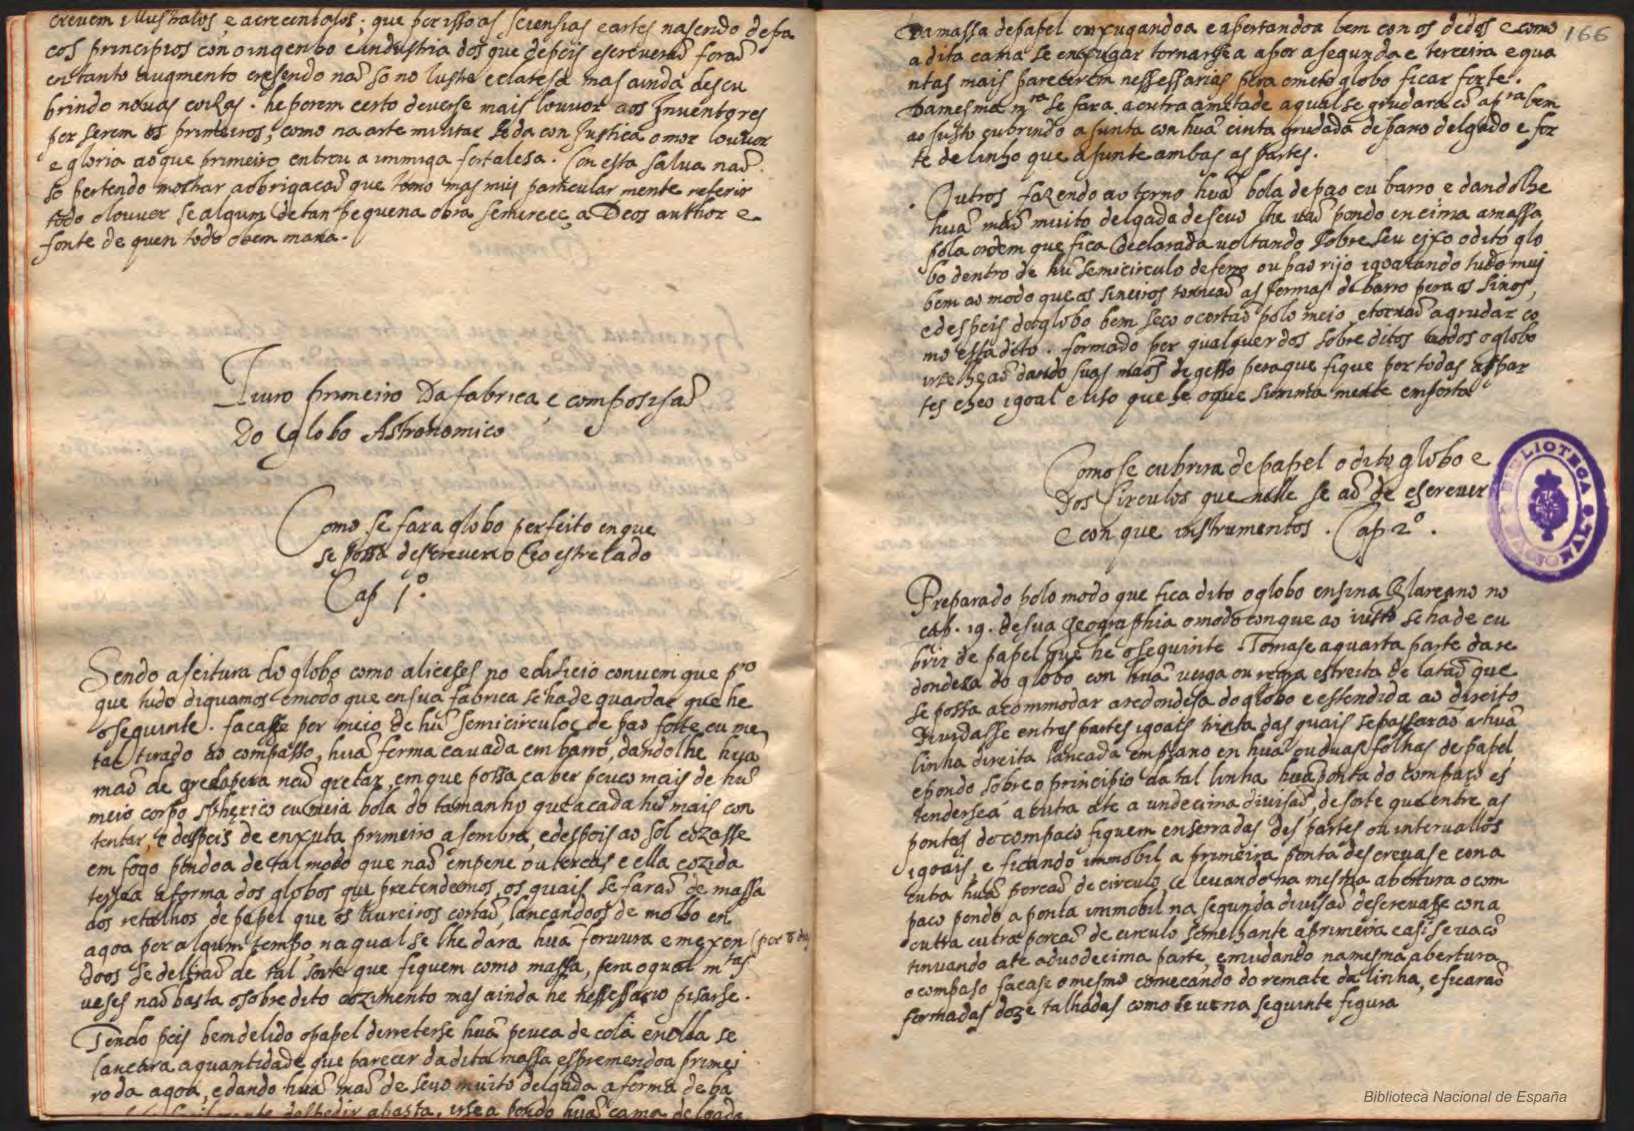 crevem illustralos, e acrecentalos; que por isso as sciensias e artes nasendo de pa
cos principios con o ingenho e industria dos que depois escreveraõ foraõ
en tanto augmento cresendo naõ so no lustre e clatesa mas ainda descu
brindo novas coizas. he porem certo deverse mais louvor aos Inventores
por serem os primeiros; como na arte militar se da con Justica o mor louvor
e gloria ao que primeiro entrou a inimiga fortalesa. Con esta salva naõ
so pertendo mostrar a obrigacaõ que tomo mas mui particular mente referir
todo o louvor se algum de tan pequena obra se merece a Deos author e
fonte de quen todo o bem mana.
Livro primeiro Da fabrica, e composisaõ
Do Globo Astronomico
Como se fara globo perfeito en que
se possa descrever o Ceo estrelado
Cap 1º.
Sendo a feitura do globo como aliceses no edificio convem que pro
que tudo digamos o modo que en sua fabrica se ha de guardar que he
o seguinte. facasse por meio de hũ semicirculo de pao forte, ou me
tal tirado ao compasso, huã forma cavada em barro, dandolhe huã
maõ de greda pera naõ gretar, em que possa caber pouco mais de hũ
meio corpo spherico ou meia bola do tamanho que a cada hũ mais con
tentar, e despois de enxuta primeiro a sombra, e despois ao sol cozasse
em fogo pondoa de tal modo que naõ empene ou torcas e ella cozida
tersea a forma dos globos que pretendemos, os quais se faraõ de massa
dos retalhos de papel que os livreiros cortaõ, lancandoos de molho en
agoa por algum tempo, na qual se lhe dara huã fervura e mexen
doos se delfiraõ de tal sorte que fiquem como massa, pera o qual mtas
veses naõ basta o sobredito cozimento mas ainda he nessessario pisarse.
Tendo pois bem delido o papel derreterse huã pouca de cola e nella se
lancara a quantidade que parecer da dita massa espremendoa primei
ro da agoa, e dando huã maõ de sevo muito delgada a forma de ba
despedir a pasta, irse a pondo huã cama de
Da massa de papel enxugandoa e apertandoa bem con os dedos e como
166
a dita cama se enxugar tornarsea a por a segunda e terceira e qua
ntas mais parecerem nessessarias pera o meio globo ficar forte.
Da mesma mra se fara a outra ametade a qual se grudara cõ a pra bem
ao justo cubrindo a junta con huã cinta grudada de pano delgado e for
te de linho que ajunte ambas as partes.
Outros fazendo ao torno huã bola de pao ou barro e dandolhe
huã maõ muito delgada de sevo lhe vaõ pondo en cima a massa
pola ordem que fica declarada voltando sobre seu eixo o dito glo
bo dentro de hũ semicirculo de ferro ou pao rijo igoalando tudo mui
bem ao modo que os sineiros torneaõ as formas de barro pera os sinos,
e despois do globo bem seco o cortaõ polo meio, e tornaõ a grudar co
mo esta dito. formado por qualquer dos sobreditos modos o globo
irselheaõ dando suas maõs de gesso pera que fique por todas as par
tes cheo igoal e liso que he o que summa mente emporta
Como se cubrira de papel o dito globo e
Dos Circulos que nelle se aõ de escrever
e con que instrumentos. Cap 2º.
Preparado polo modo que fica dito o globo ensina Glareano no
cap. 19. de sua geographia o modo con que ao justo se ha de cu
brir de papel que he o seguinte. Tomase a quarta parte da re
dondesa do globo con huã verga ou regra estreita de lataõ que
se possa acommodar a redondesa do globo e estendida ao direito
Dividasse en tres partes igoais trinta das quais se passaraõ a huã
linha direita lancada em plano en huã ou duas folhas de papel
e pondo sobre o principio da tal linha huã ponta do compaso es
tendersea a outra ate a undecima divisaõ, de sorte que entre as
pontas do compaço fiquem enserradas des partes ou intervallos
igoais, e ficando immobil a primeira ponta descrevase con a
outra huã porcaõ de circulo, e levando na mesma abertura o com
paço pondo a ponta immobil na segunda divisaõ descrevasse con a
outra outra porcaõ de circulo semelhante a primeira e asi se va cõ
tinuando ate a duodecima parte, e mudando na mesma abertura
o compaso facase o mesmo comecando do remate da linha, e ficaraõ
formadas doze talhadas como se ve na seguinte figura
BIBLIOTECA
Biblioteca Nacional de España